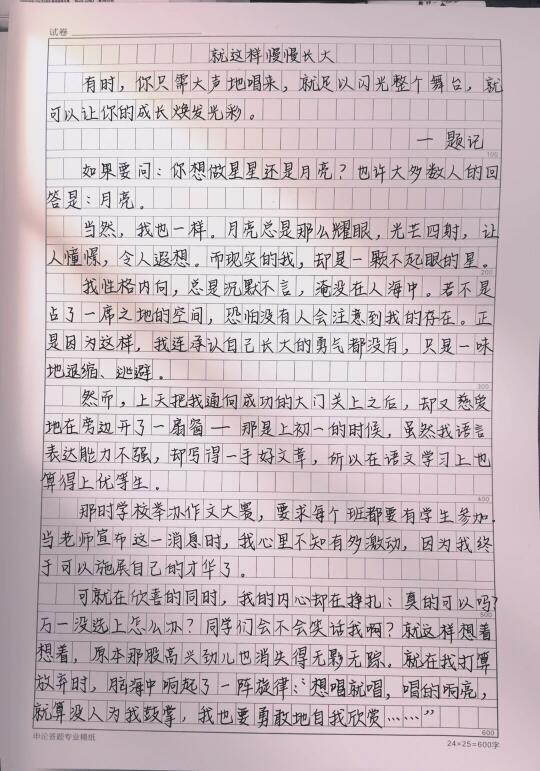 试卷
就这样慢慢长大
有时，你只需大声地唱来，就足以闪光整个舞台，就
可以让你的成长焕发光彩。
— 题记
100
如果要问：你想做星星还是月亮？也许大多数人的回
答是：月亮。
当然，我也一样。月亮总是那么耀眼，光芒四射，让
人憧憬，令人遐想。而现实的我，却是一颗不起眼的星。
200
我性格内向，总是沉默不言，淹没在人海中。若不是
占了一席之地的空间，恐怕没有人会注意到我的存在。正
是因为这样，我连承认自己长大的勇气都没有，只是一味
地退缩、逃避。
300
然而，上天把我通向成功的大门关上之后，却又慈爱
地在旁边开了一扇窗— 那是上初一的时候，虽然我语言
表达能力不强，却写得一手好文章，所以在语文学习上也
算得上优等生。
400
那时学校举办作文大赛，要求每个班都要有学生参加.
当老师宣布这一消息时，我心里不知有多激动，因为我终
于可以施展自己的才华了。
可就在欣喜的同时，我的内心却在挣扎：真的可以吗？
500
万一没选上怎么办？同学们会不会笑话我啊？就这样想着
想着，原本那股高兴劲儿也消失得无影无踪。就在我打算
放弃时，脑海中响起了一阵旋律：“想唱就唱，唱的响亮，
就算没人为我鼓掌，我也要勇敢地自我欣赏……”
600
申论答题专业稿纸
24×25=600字